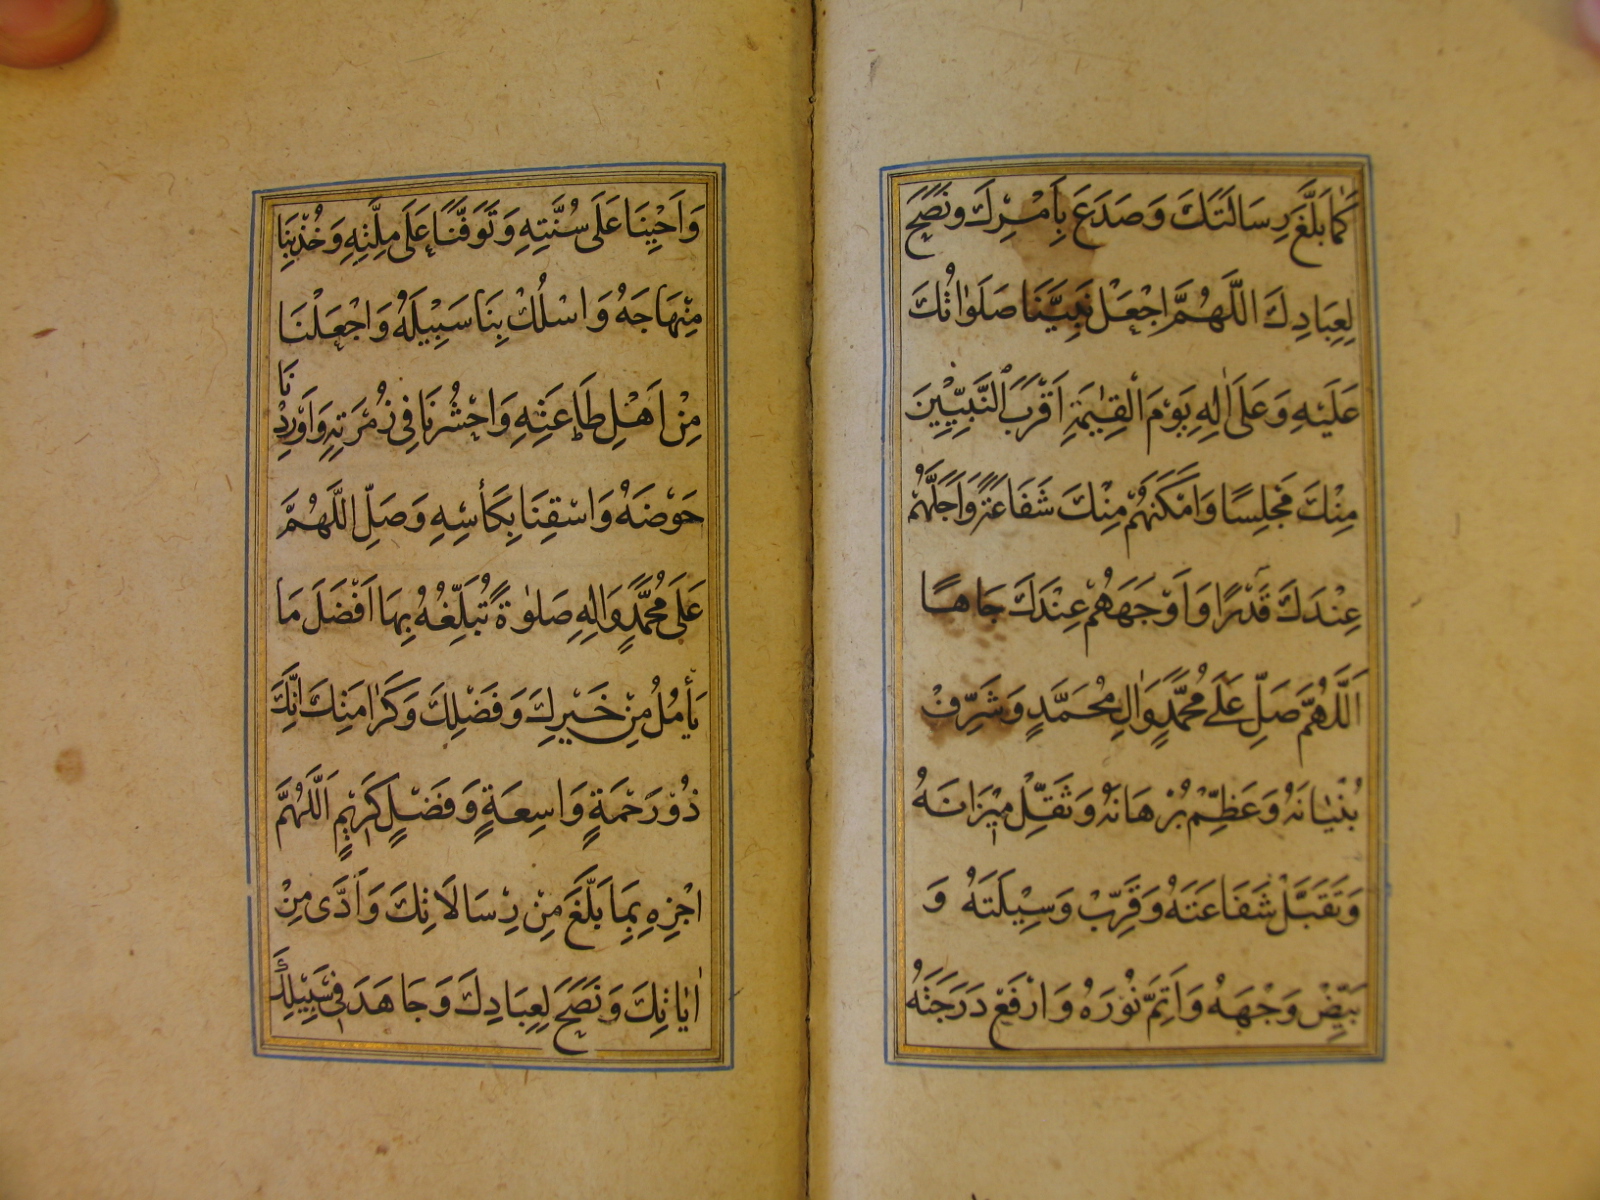 كَمَا بَلَّغَ رِسَالَتَكَ وَصَدَعَ بِاَمْرِكَ وَنَصَحَ
لِعِبَادِكَ اللَّهُمَّ اجْعَلْ نَبِيَّنَا صَلَوَاتُكَ
عَلَيْهِ وَعَلَى اٰلِهِ يَوْمَ الْقِيٰمَةِ اَقْرَبَ النَّبِيِّينَ
مِنْكَ مَجْلِسًا وَاَمْكَنَهُمْ مِنْكَ شَفَاعَةً وَاَجَلَّهُمْ
عِنْدَكَ قَدْرًا وَاَوْجَهَهُمْ عِنْدَكَ جَاهًا
اَللَّهُمَّ صَلِّ عَلَى مُحَمَّدٍ وَاٰلِ مُحَمَّدٍ وَشَرِّفْ
بُنْيَانَهُ وَعَظِّمْ بُرْهَانَهُ وَثَقِّلْ مِيزَانَهُ
وَتَقَبَّلْ شَفَاعَتَهُ وَقَرِّبْ وَسِيلَتَهُ وَ
بَيِّضْ وَجْهَهُ وَاَتِمَّ نُورَهُ وَارْفَعْ دَرَجَتَهُ
وَاَحْيِنَا عَلَى سُنَّتِهِ وَتَوَفَّنَا عَلَى مِلَّتِهِ وَخُذْ بِنَا
مِنْهَاجَهُ وَاسْلُكْ بِنَا سَبِيلَهُ وَاجْعَلْنَا
مِنْ اَهْلِ طَاعَتِهِ وَاحْشُرْنَا فِي زُمْرَتِهِ وَاَوْرِدْنَا
حَوْضَهُ وَاسْقِنَا بِكَأْسِهِ وَصَلِّ اللَّهُمَّ
عَلَى مُحَمَّدٍ وَاٰلِهِ صَلٰوةً تُبَلِّغُهُ بِهَا اَفْضَلَ مَا
يَأْمُلُ مِنْ خَيْرِكَ وَفَضْلِكَ وَكَرَامَتِكَ اِنَّكَ
ذُو رَحْمَةٍ وَاسِعَةٍ وَفَضْلٍ كَرِيمٍ اَللَّهُمَّ
اجْزِهِ بِمَا بَلَّغَ مِنْ رِسَالَاتِكَ وَاَدَّى مِنْ
اٰيَاتِكَ وَنَصَحَ لِعِبَادِكَ وَجَاهَدَ فِي سَبِيلِكَ